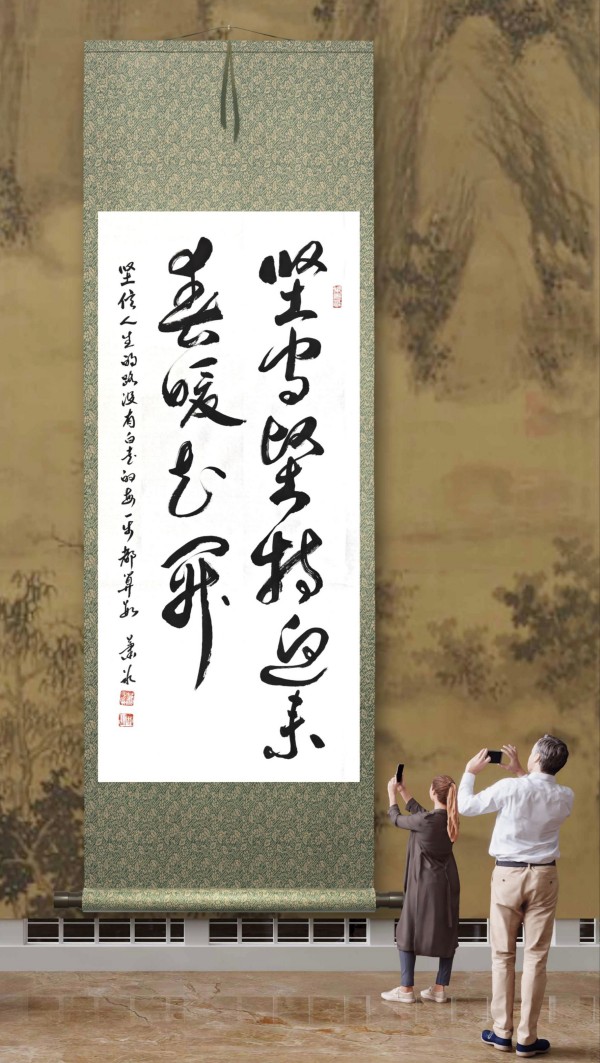 坚守坚持迎来
春暖花开
坚信人生的路没有白走的每一步都算数 萧冰